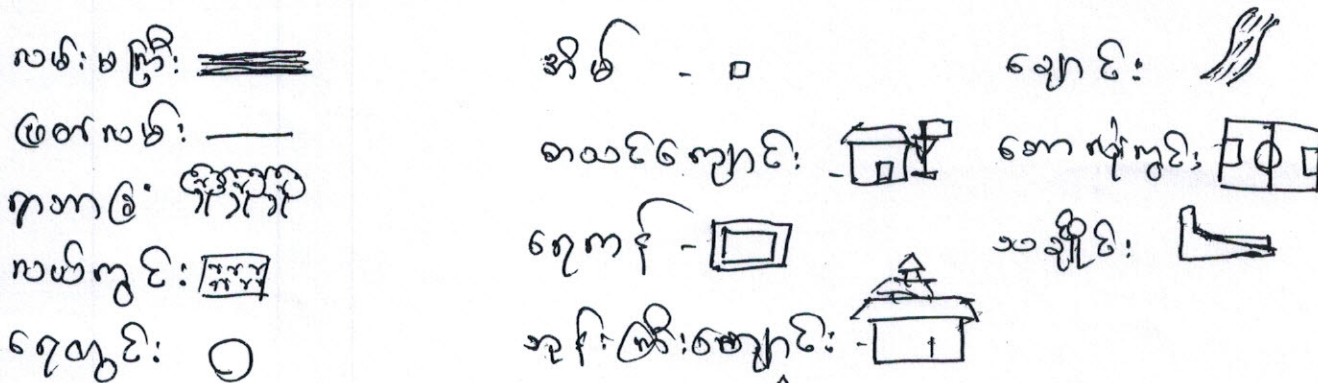 လမ်းမကြီး
ဖြတ်လမ်း
ရာဘာခြံ
လယ်ကွင်း
ရေတွင်း
အိမ် -
စာသင်ကျောင်း -
ရေကန် -
ဘုန်းကြီးကျောင်း -
ချောင်း
ဘောလုံးကွင်း
သချိုင်း